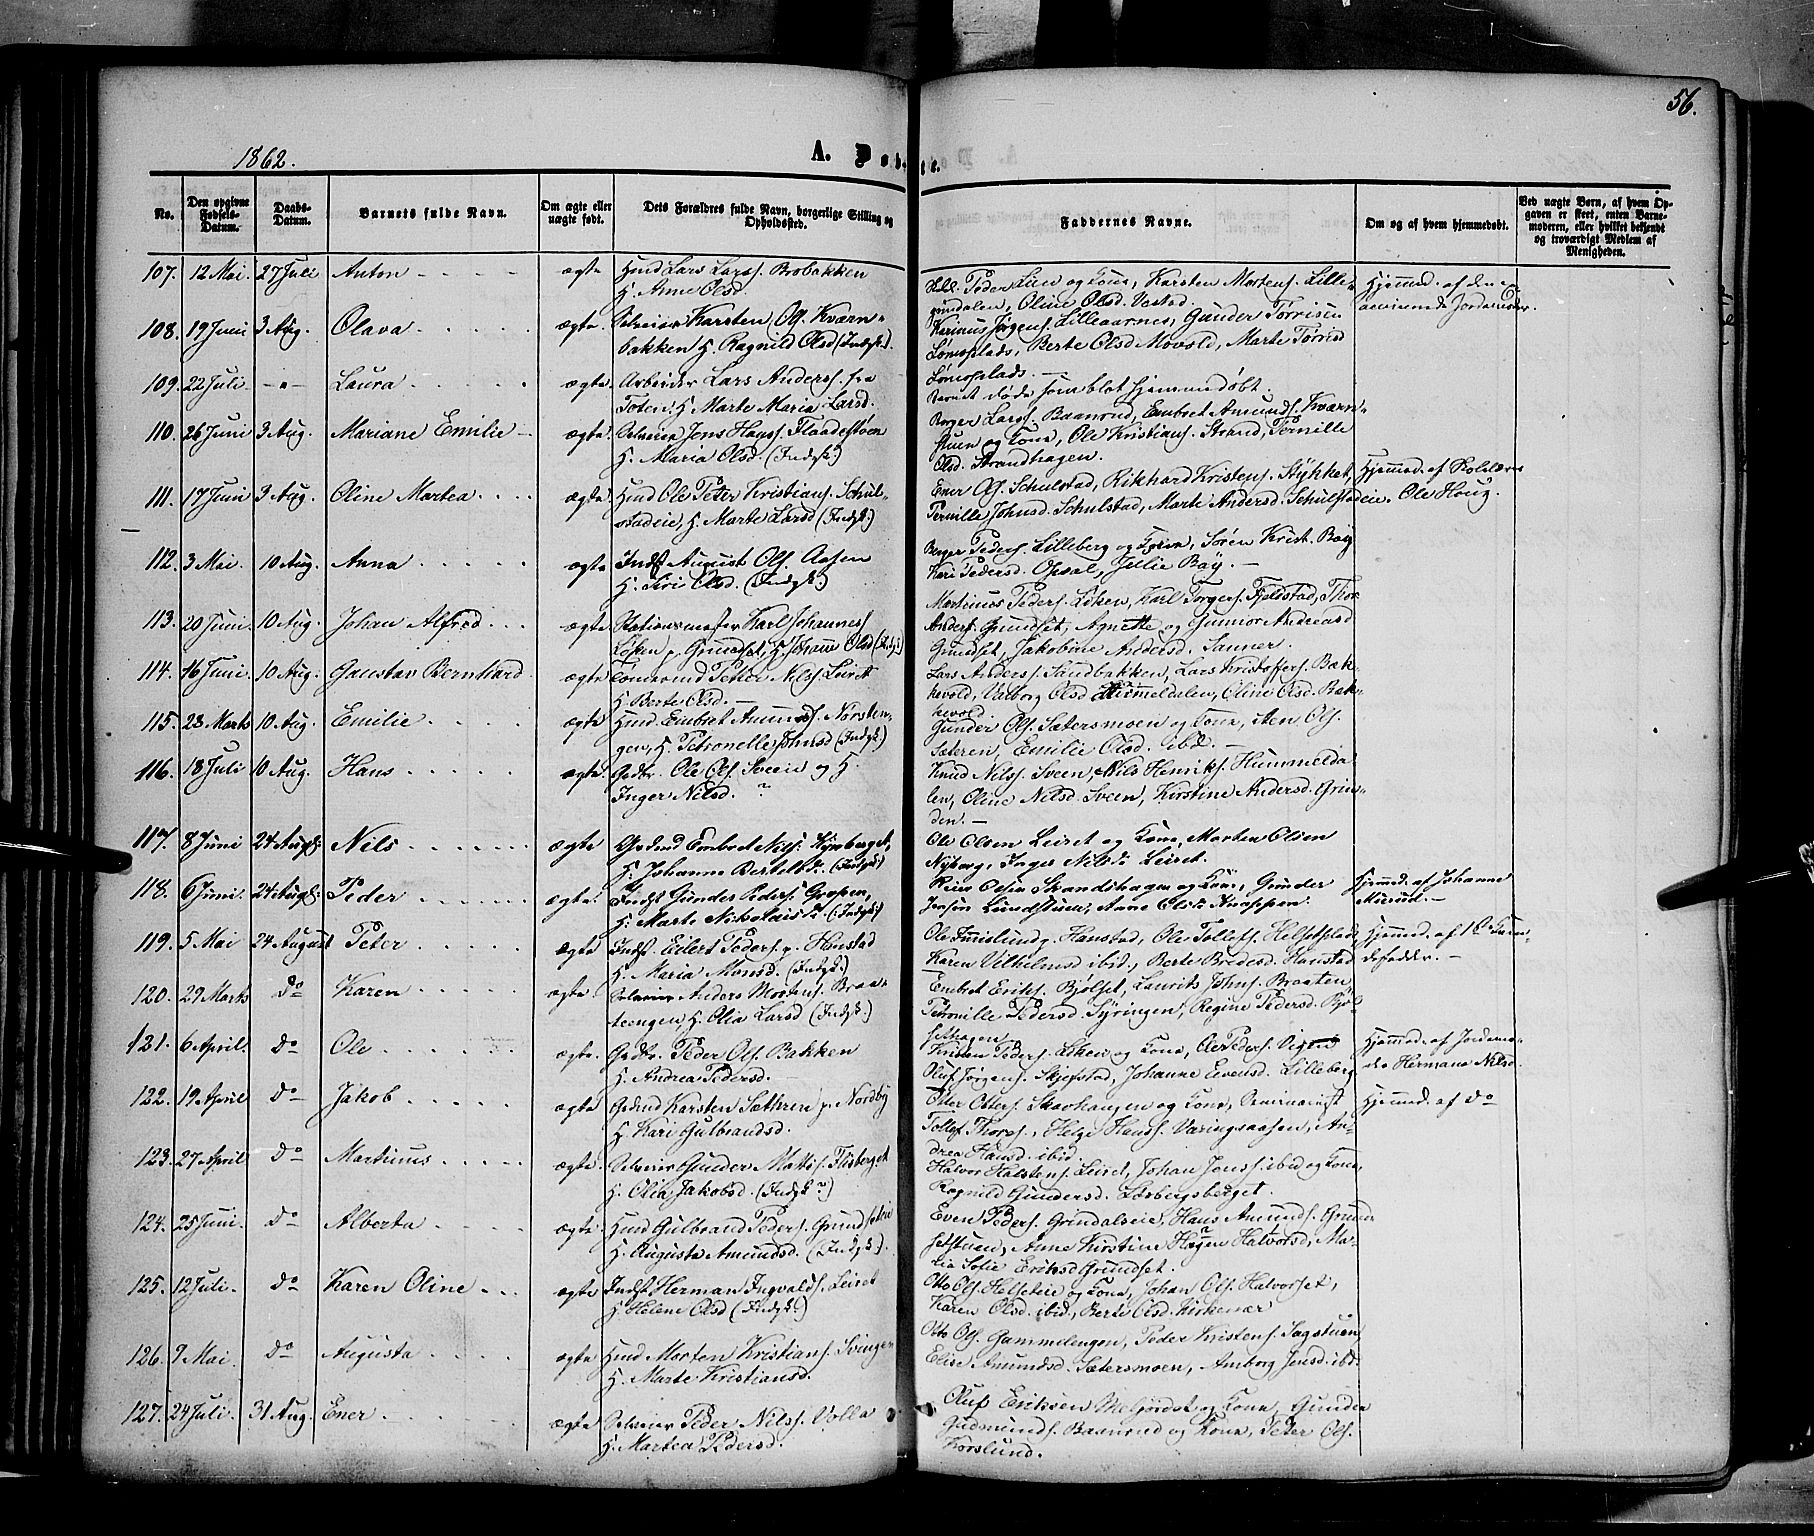 56.
1862.
A. Døbte.
No.
Den opgivne Fødsels-Datum.
Daabs-Datum.
Barnets fulde Navn.
Om ægte eller uægte født.
Dets Forældres fulde Navn, borgerlige Stilling og Opholdssted.
Faddernes Navne.
Om og af hvem hjemmedøbt.
Ved uægte Børn, af hvem Opgaven er skeet, enten Barnemoderen, eller hvilket bekjendt og troværdigt Medlem af Menigheden.
107. 12 Mai 27 Juli Anton ægte Huusmd Lars Larss. Brobakken
H. Anne Olsd.
Peder Lien og Kone, Karsten Mortens. Lille-
grundalen, Oline Olsd. Vestad.
Hjemmed. af den
108. 19 Juni 3 Aug. Olava ægte Selveier Karsten Ols. Kværn-
bakken H. Ragnild Olsd (Indgk.)
Karinus Jørgens. Lilleaarnes, Gunder Tørrisen
Lømosplads, Berte Olsd Movold, Marte Tørrisd
Lømosplads.
109. 22 Juli -"- Laura ægte Arbeider Lars Anderss. fra
Toten, H. Marte Maria Larsd.
Barnet døde som blot hjemmedøbt.
110. 26 Juni 3 Aug. Mariane Emilie ægte Selveier Jens Hanss. Flaadestøen
H. Maria Olsd. (Indgk)
Larss. Baanrud, Embret Amunds. Kværn-
stuen og Kone, Ole Kristians. Strand, Pernille
Olsd. Strandhagen.
111. 17 Juni 3 Aug. Oline Martea ægte Huusmd Ole Peter Kristians. Schul-
stadeie, H. Marte Larsd (Indgk.)
Ener Ols. Schulstad, Rikhard Kristens. Stykket,
Pernille Johnsd. Schulstad, Marte Andersd. Schulstadeie.
Hjemmed. af Skolelærer
Ole Houg.
112. 3 Mai 10 Aug. Anna ægte Indst August Ols. Aasen
H. Siri Olsd. (Indgk.)
Berger Peders. Lilleberg og Kone, Søren Krist. Bøy
Kari Pedersd. Opsal, Jillie Bøy.
113. 20 Juni 10 Aug. Johan Alfred ægte Stationsmester Karl Johanness
Løken p. Grundset, H. Johanne Olsd (Indgk)
Martinus Peders. Løken, Karl Torgers. Fjeldstad, Thor
Anders. Grundset, Agnette og Gunnor Andreasd
Grundset, Jakobine Andersd. Sanner.
114. 16 Juni 10 Aug. Gaustav Bernhard ægte Petter Nilss. Leiret
H. Berte Olsd.
Lars Anderss. Sandbakken, Lars Kristoffers. Bæk-
kevold, Valborg Olsd. Himmeldalen, Oline Olsd. Bæk-
kevold
115. 23 Marts 10 Aug. Emilie ægte Huusmd Embret Amunds. Norsten-
gen, H. Petronelle Johnsd (Indgk.)
Gunder Ols. Sætersmoen og Kone, Iten Ols.
Sæteren, Emilie Olsd. ibd.
116. 18 Juli 10 Aug. Hans ægte Grdbr. Ole Ols. Sveen og H.
Inger Nilsd. ?
Knud Nilss. Sveen, Nils Henriks. Himmelda-
len, Oline Nilsd. Sveen, Kirstine Andersd. Grin-
den.
117. 8 Juni 24 Augst. Nils ægte Grdmd Embret Nils. Kynberget,
H. Johanne Bertelsdr. (Indgk)
Ole Olsen Leiret og Kone, Morten Olsen
Nyborg, Inger Nilsdr Leiret.
118. 6 Juni 24 Augst. Peder ægte Indst Gunder Peders. Gropen,
H. Marte Nikolaisdr (Indgk)
Olsen Strandhagen og Kone, Gunder
Jensen Lundstuen, Anne Olsdr. Knappen.
Hjemmd. af Johanne
119. 5 Mai 24 August Peter ægte Indst. Eilert Peders. p. Hanstad
H. Maria Monsd. (Indgk.)
Ole p. Hanstad, Ole Tollefs. Helsetplads,
Karen Vilhelmsd ibid., Berte Bredesd. Hanstad
120. 29 Marts Do Karen ægte Selveier Anders Mortens. Braa-
teengen, H. Olia Larsd (Indgk.)
Embret Eriks. Bjølset, Laurits Johns. Braaten,
Petronille Pedersd. Syringen, Regine Pedersd. Bjøl-
sethagen
121. 6 April. Do Ole ægte. Grdbr. Peder Ols. Bakken
H. Andrea Pedersd.
Kristen Peders. Løken og Kone, Ole Peders. Vigen
Oluf Jørgens. Skjefstad, Johanne Evensd. Lilleberg
Hjemmed. af Jordemo-
der Hermana Nilsd.
122. 19 April Do Jakob ægte Grdmd Karsten Sæthren p. Nordby
H. Kari Gulbrandsd.
Otter Otters. Skavhaugen og Kone, Seminarist
Tollef Thores., Helge Hans. Væringsaasen, An-
drea Hansd. ibid.
Hjemmed. af Do
123. 27 April Do Martinus ægte. Selveier Gunder Mattis. Flisberget
H. Olia Jakobsd. (Indgk?)
Halvor Halstens. Leiret, Johan Jenss. ibid og Kone,
Ragnild Gundersd. Løsbergsberget.
124. 25 Juni. Do Alberta ægte. Huusmd Gulbrand Peders. Grundseteie
H. Augusta Amundsd. (Indgk.)
Even Peders. Grindalseie, Hans Amunds. Grund-
setstuen, Anne Kirstine Hagen Halvorsd, Ma-
ria Sofie Eriksd Grundset.
125. 12 Juli. Do Karen Oline ægte Indst Herman Ingvalds. Leiret
H. Helene Olsd (Indgk.)
Otto Ols. Helseteie og Kone, Johan Ols. Halvorset,
Karen Olsd. ibid, Berte Olsd. Kirkenær
126. 7 Mai. Do Augusta ægte Huusmd Morten Kristians. Svingen
H. Marte Kristiansd.
Otto Ols. Gammelengen, Peder Kristens. Sagstuen,
Elise Amundsd. Sætersmoen, Amborg Jensd. ibid.
127. 24 Juli. 31 Aug. Ener ægte Selveier Peder Nilss. Volla
H. Martea Pedersd.
Oluf Eriksen Melgjordet og Kone, Gunder
Gudmunds. Baanrud og Kone, Peter Ols.
Korslund.